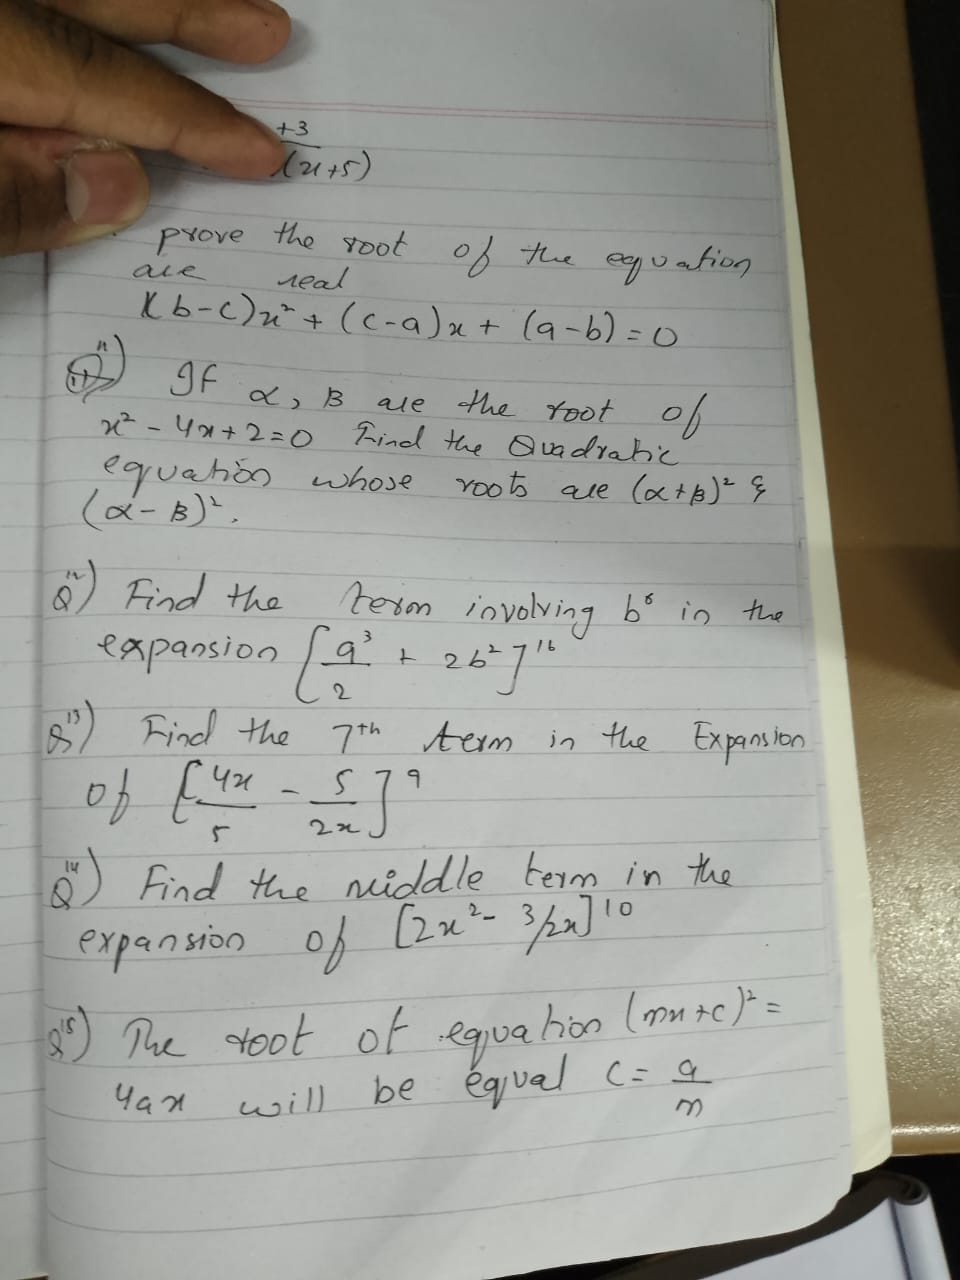 +3
(x+5)
prove the root of the equation
are real
(b-c)x² + (c-a)x + (a-b) = 0
Q11) If α, β are the root of
x² - 4x + 2 = 0 Find the Quadratic
equation whose roots are (α+β)² &
(α-β)².
Q12) Find the term involving b⁶ in the
expansion [a³/2 + 2b²]¹⁶
Q13) Find the 7th term in the Expansion
of [4x/5 - 5/2x]⁹
Q14) Find the middle term in the
expansion of [2x² - 3/2x]¹⁰
Q15) The root of equation (mx+c)² =
4ax will be equal c = a/m